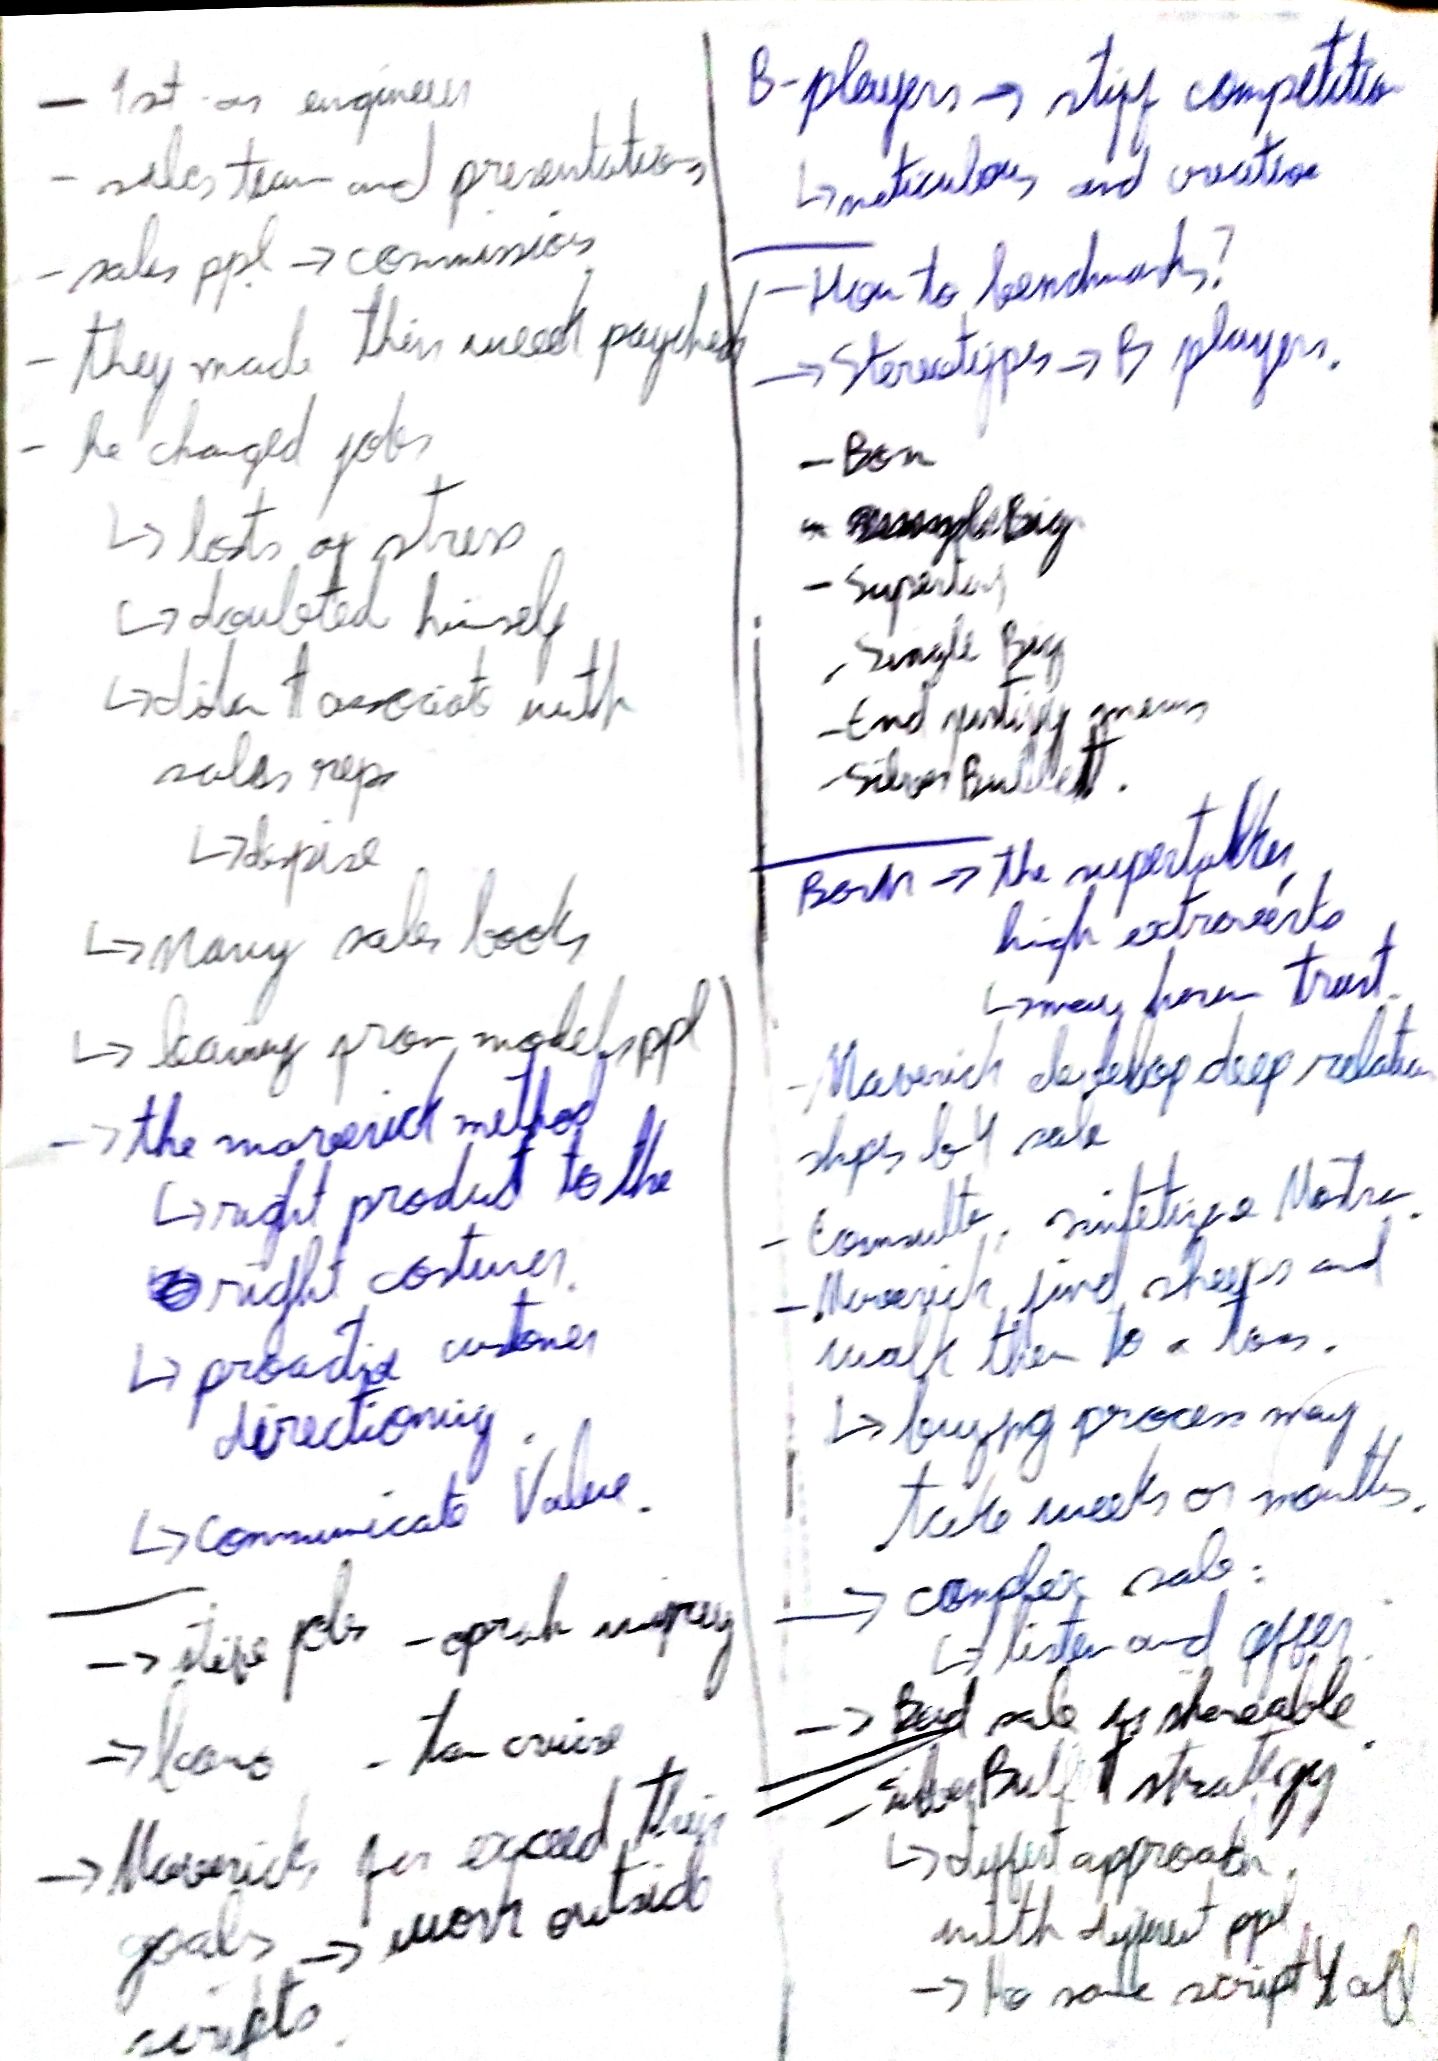 - 1st as engineer
- sales team and presentations
- sales ppl → commissions
- they made their week paycheck
- he changed jobs
↳ losts of stress
↳ doubted himself
↳ didn't associate with
sales reps
↳ despise
↳ Many sales books
↳ learning from models ppl
→ the maverick method
↳ right product to the
right costumer.
↳ proactive customer
directioning.
↳ Communicate Value.
→ steve jobs - oprah winfrey
→ - tom cruise
→ Mavericks far exceed their
goals → work outside
scripts.
B-players → stiff competition
↳ meticulous and creative
- How to benchmarks?
→ Stereotypes → B players.
- Born
- Single Big
- End justify means
- Silver Bullett.
Born → the supertalker,
high extroverts
↳ may harm trust.
- Maverick develop deep relation
ships b4 sale
- Consult,
- Maverick find sheeps and
walk them to a
↳ buying process may
take weeks or months.
→ complex sale:
↳ listen and offer.
→ Bad sale is shareable.
- Silver Bullet strategy
↳ diffent approach.
with different ppl
→ No same script 4 all